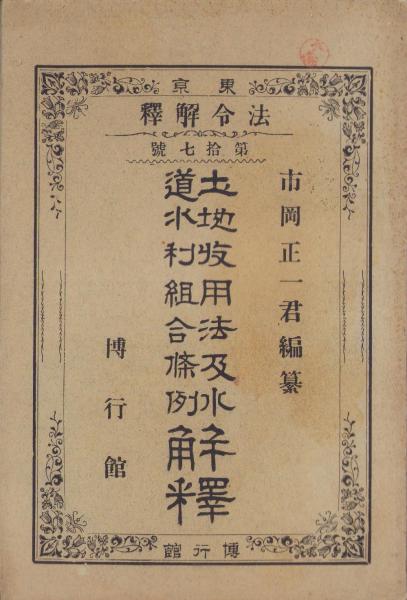 東京
法令解釋
第拾七號
市岡正一君編纂
土地收用法及水
道水利組合條例
解釋
博行館
博行館